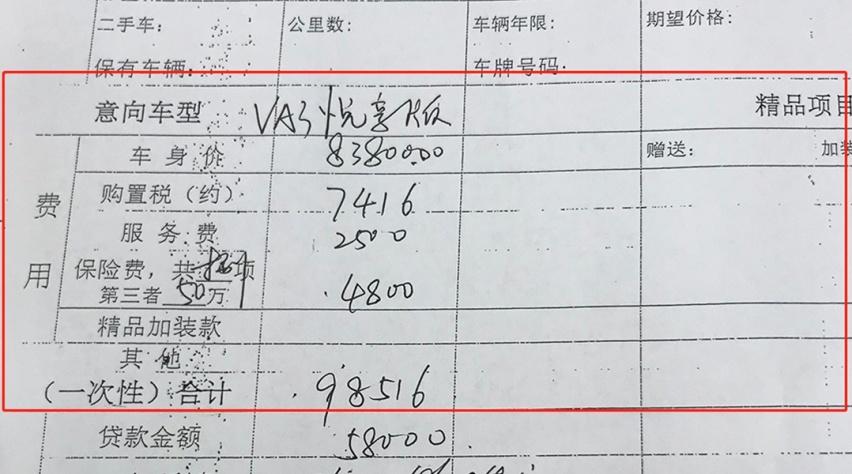 二手车： 公里数： 车辆年限： 期望价格：
保有车辆： 车牌号码：
意向车型 VA3悦享版 精品项目
车身价 83800.00 赠送： 加装
费用
购置税（约） 7416
服务费 2500
保险费，共 项 4800
第三者 50万
精品加装款
其他
（一次性）合计 98516
贷款金额 58000